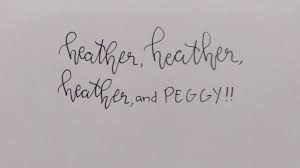 heather, heather,
heather, and PEGGY!!